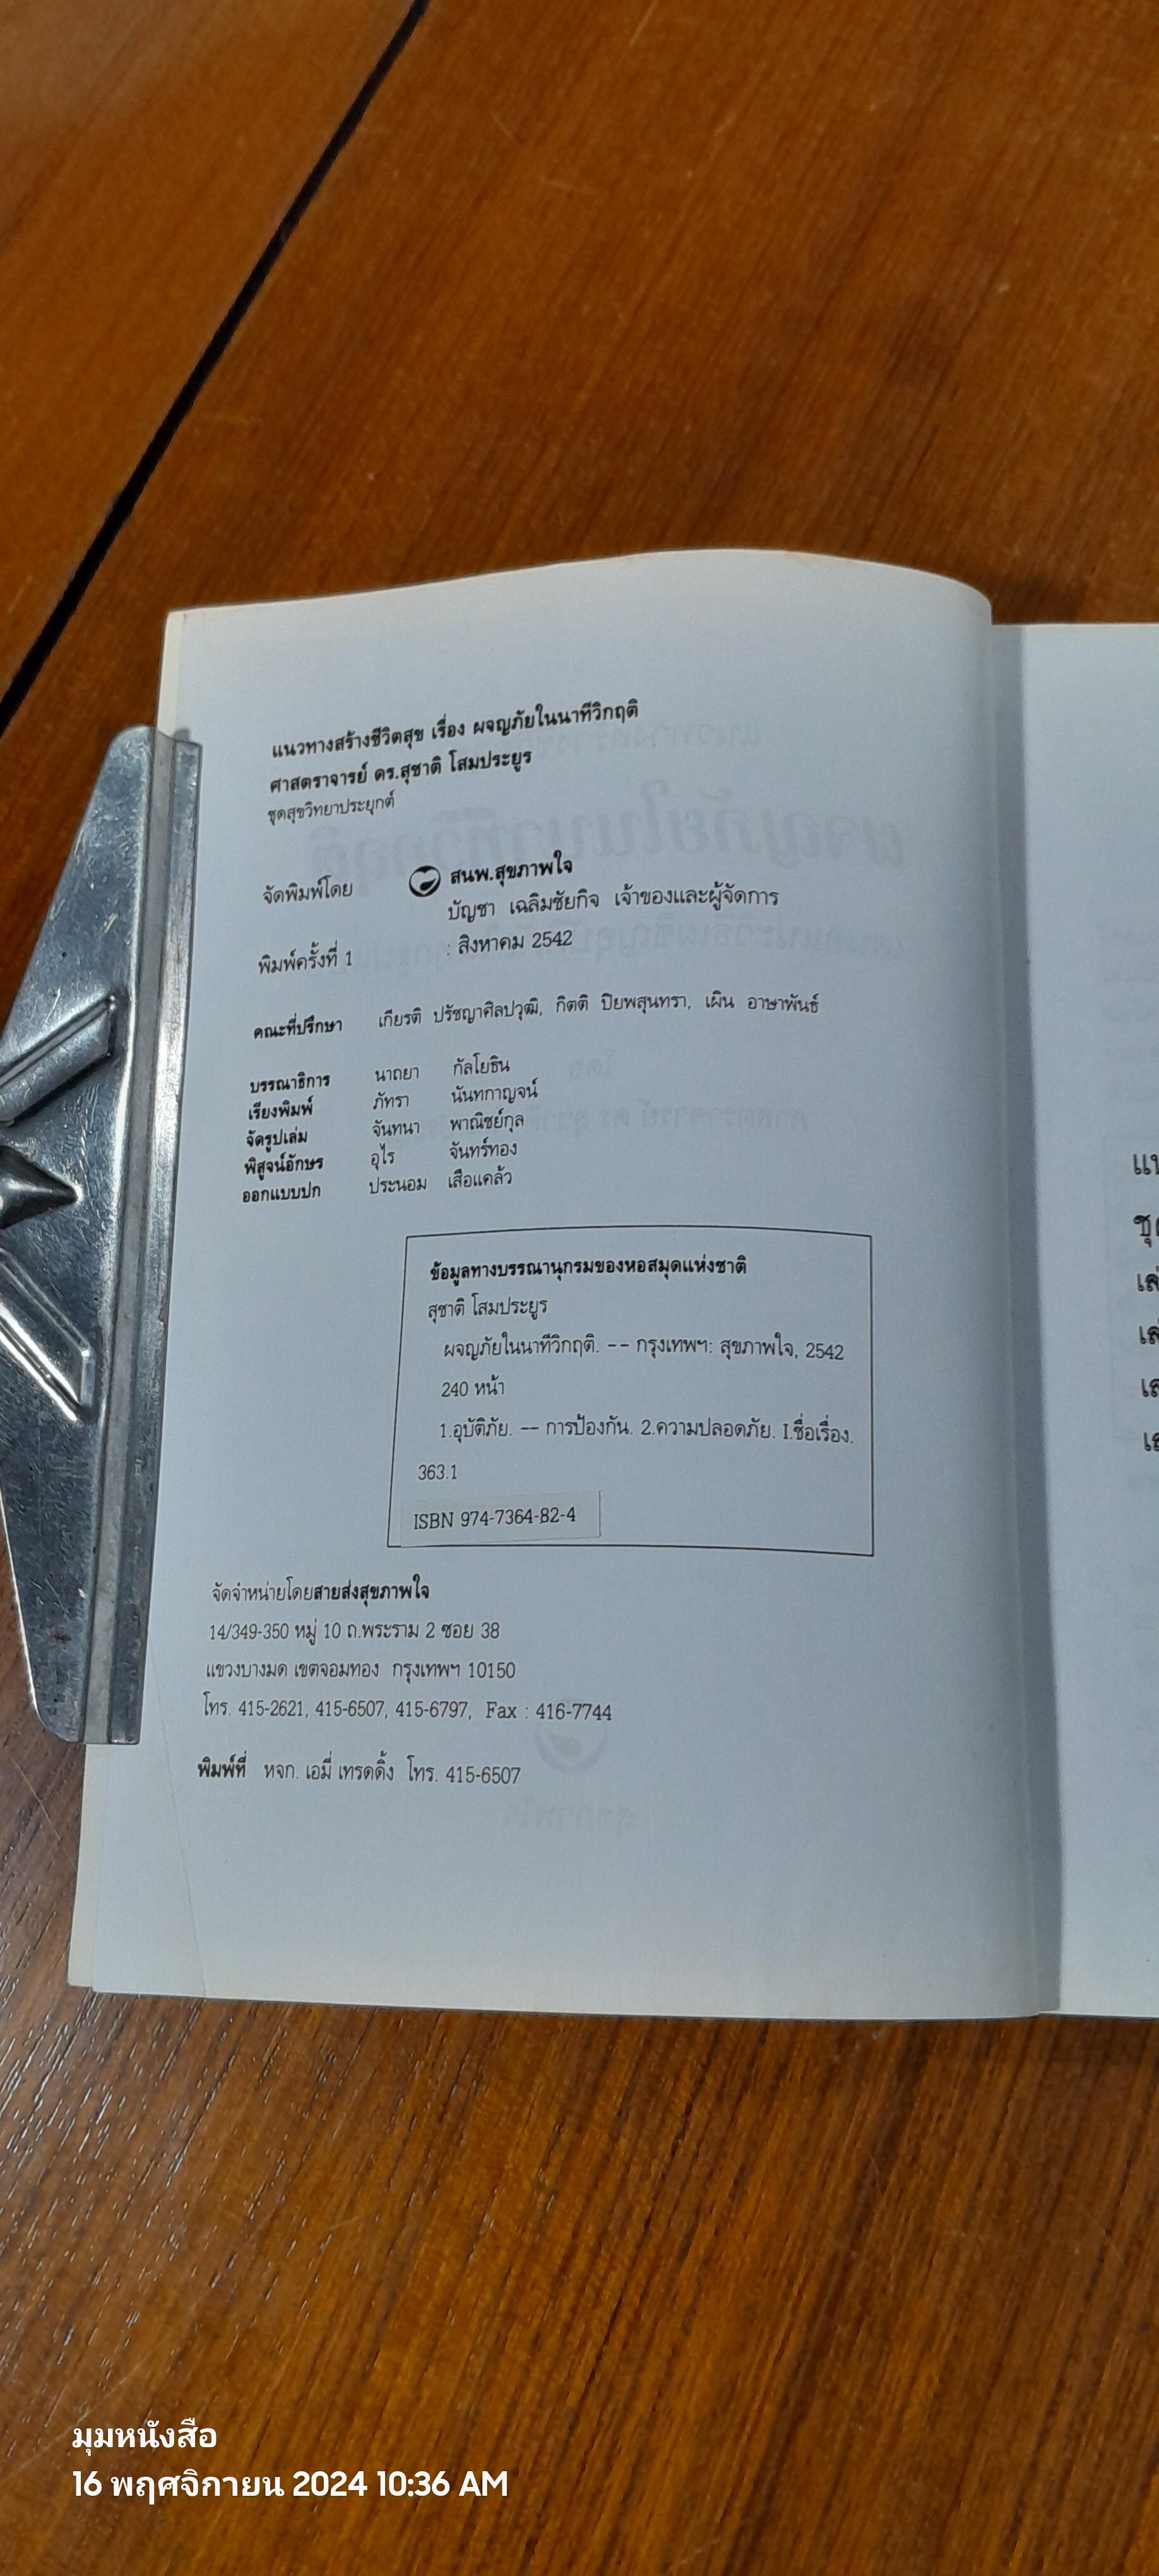 แนวทางสร้างชีวิตสุข เรื่อง ผจญภัยในนาทีวิกฤติ
ศาสตราจารย์ ดร.สุชาติ โสมประยูร
ชุดสุขวิทยาประยุกต์
จัดพิมพ์โดย สนพ.สุขภาพใจ
บัญชา เฉลิมชัยกิจ เจ้าของและผู้จัดการ
พิมพ์ครั้งที่ 1 : สิงหาคม 2542
คณะที่ปรึกษา เกียรติ ปรัชญาศิลปวุฒิ, กิตติ ปิยพสุนทรา, เผิน อาษาพันธ์
บรรณาธิการ นาถยา กัลโยธิน
เรียงพิมพ์ ภัทรา นันทกาญจน์
จัดรูปเล่ม จันทนา พาณิชย์กุล
พิสูจน์อักษร อุไร จันทร์ทอง
ออกแบบปก ประนอม เสือแคล้ว
ข้อมูลทางบรรณานุกรมของหอสมุดแห่งชาติ
สุชาติ โสมประยูร
ผจญภัยในนาทีวิกฤติ. -- กรุงเทพฯ: สุขภาพใจ, 2542
240 หน้า
1.อุบัติภัย. -- การป้องกัน. 2.ความปลอดภัย. I.ชื่อเรื่อง.
363.1
ISBN 974-7364-82-4
จัดจำหน่ายโดยสายส่งสุขภาพใจ
14/349-350 หมู่ 10 ถ.พระราม 2 ซอย 38
แขวงบางมด เขตจอมทอง กรุงเทพฯ 10150
โทร. 415-2621, 415-6507, 415-6797, Fax : 416-7744
พิมพ์ที่ หจก. เอมี่ เทรดดิ้ง โทร. 415-6507
มุมหนังสือ
16 พฤศจิกายน 2024 10:36 AM